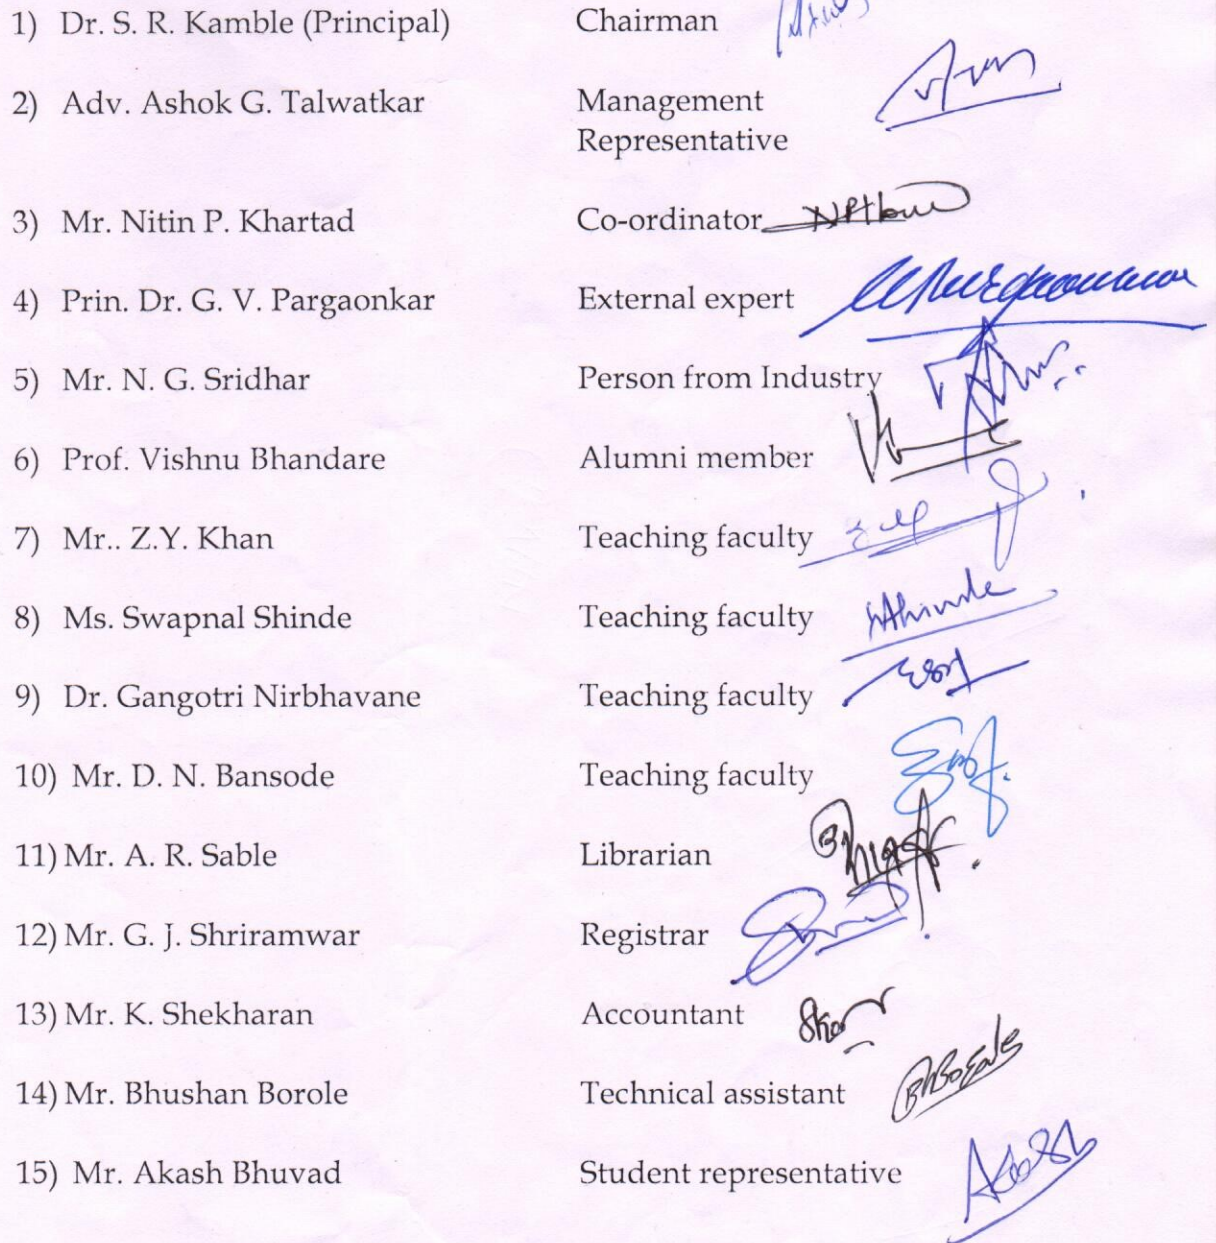 1) Dr. S. R. Kamble (Principal) Chairman
2) Adv. Ashok G. Talwatkar Management
Representative
3) Mr. Nitin P. Khartad Co-ordinator
4) Prin. Dr. G. V. Pargaonkar External expert
5) Mr. N. G. Sridhar Person from Industry
6) Prof. Vishnu Bhandare Alumni member
7) Mr.. Z.Y. Khan Teaching faculty
8) Ms. Swapnal Shinde Teaching faculty
9) Dr. Gangotri Nirbhavane Teaching faculty
10) Mr. D. N. Bansode Teaching faculty
11) Mr. A. R. Sable Librarian
12) Mr. G. J. Shriramwar Registrar
13) Mr. K. Shekharan Accountant
14) Mr. Bhushan Borole Technical assistant
15) Mr. Akash Bhuvad Student representative